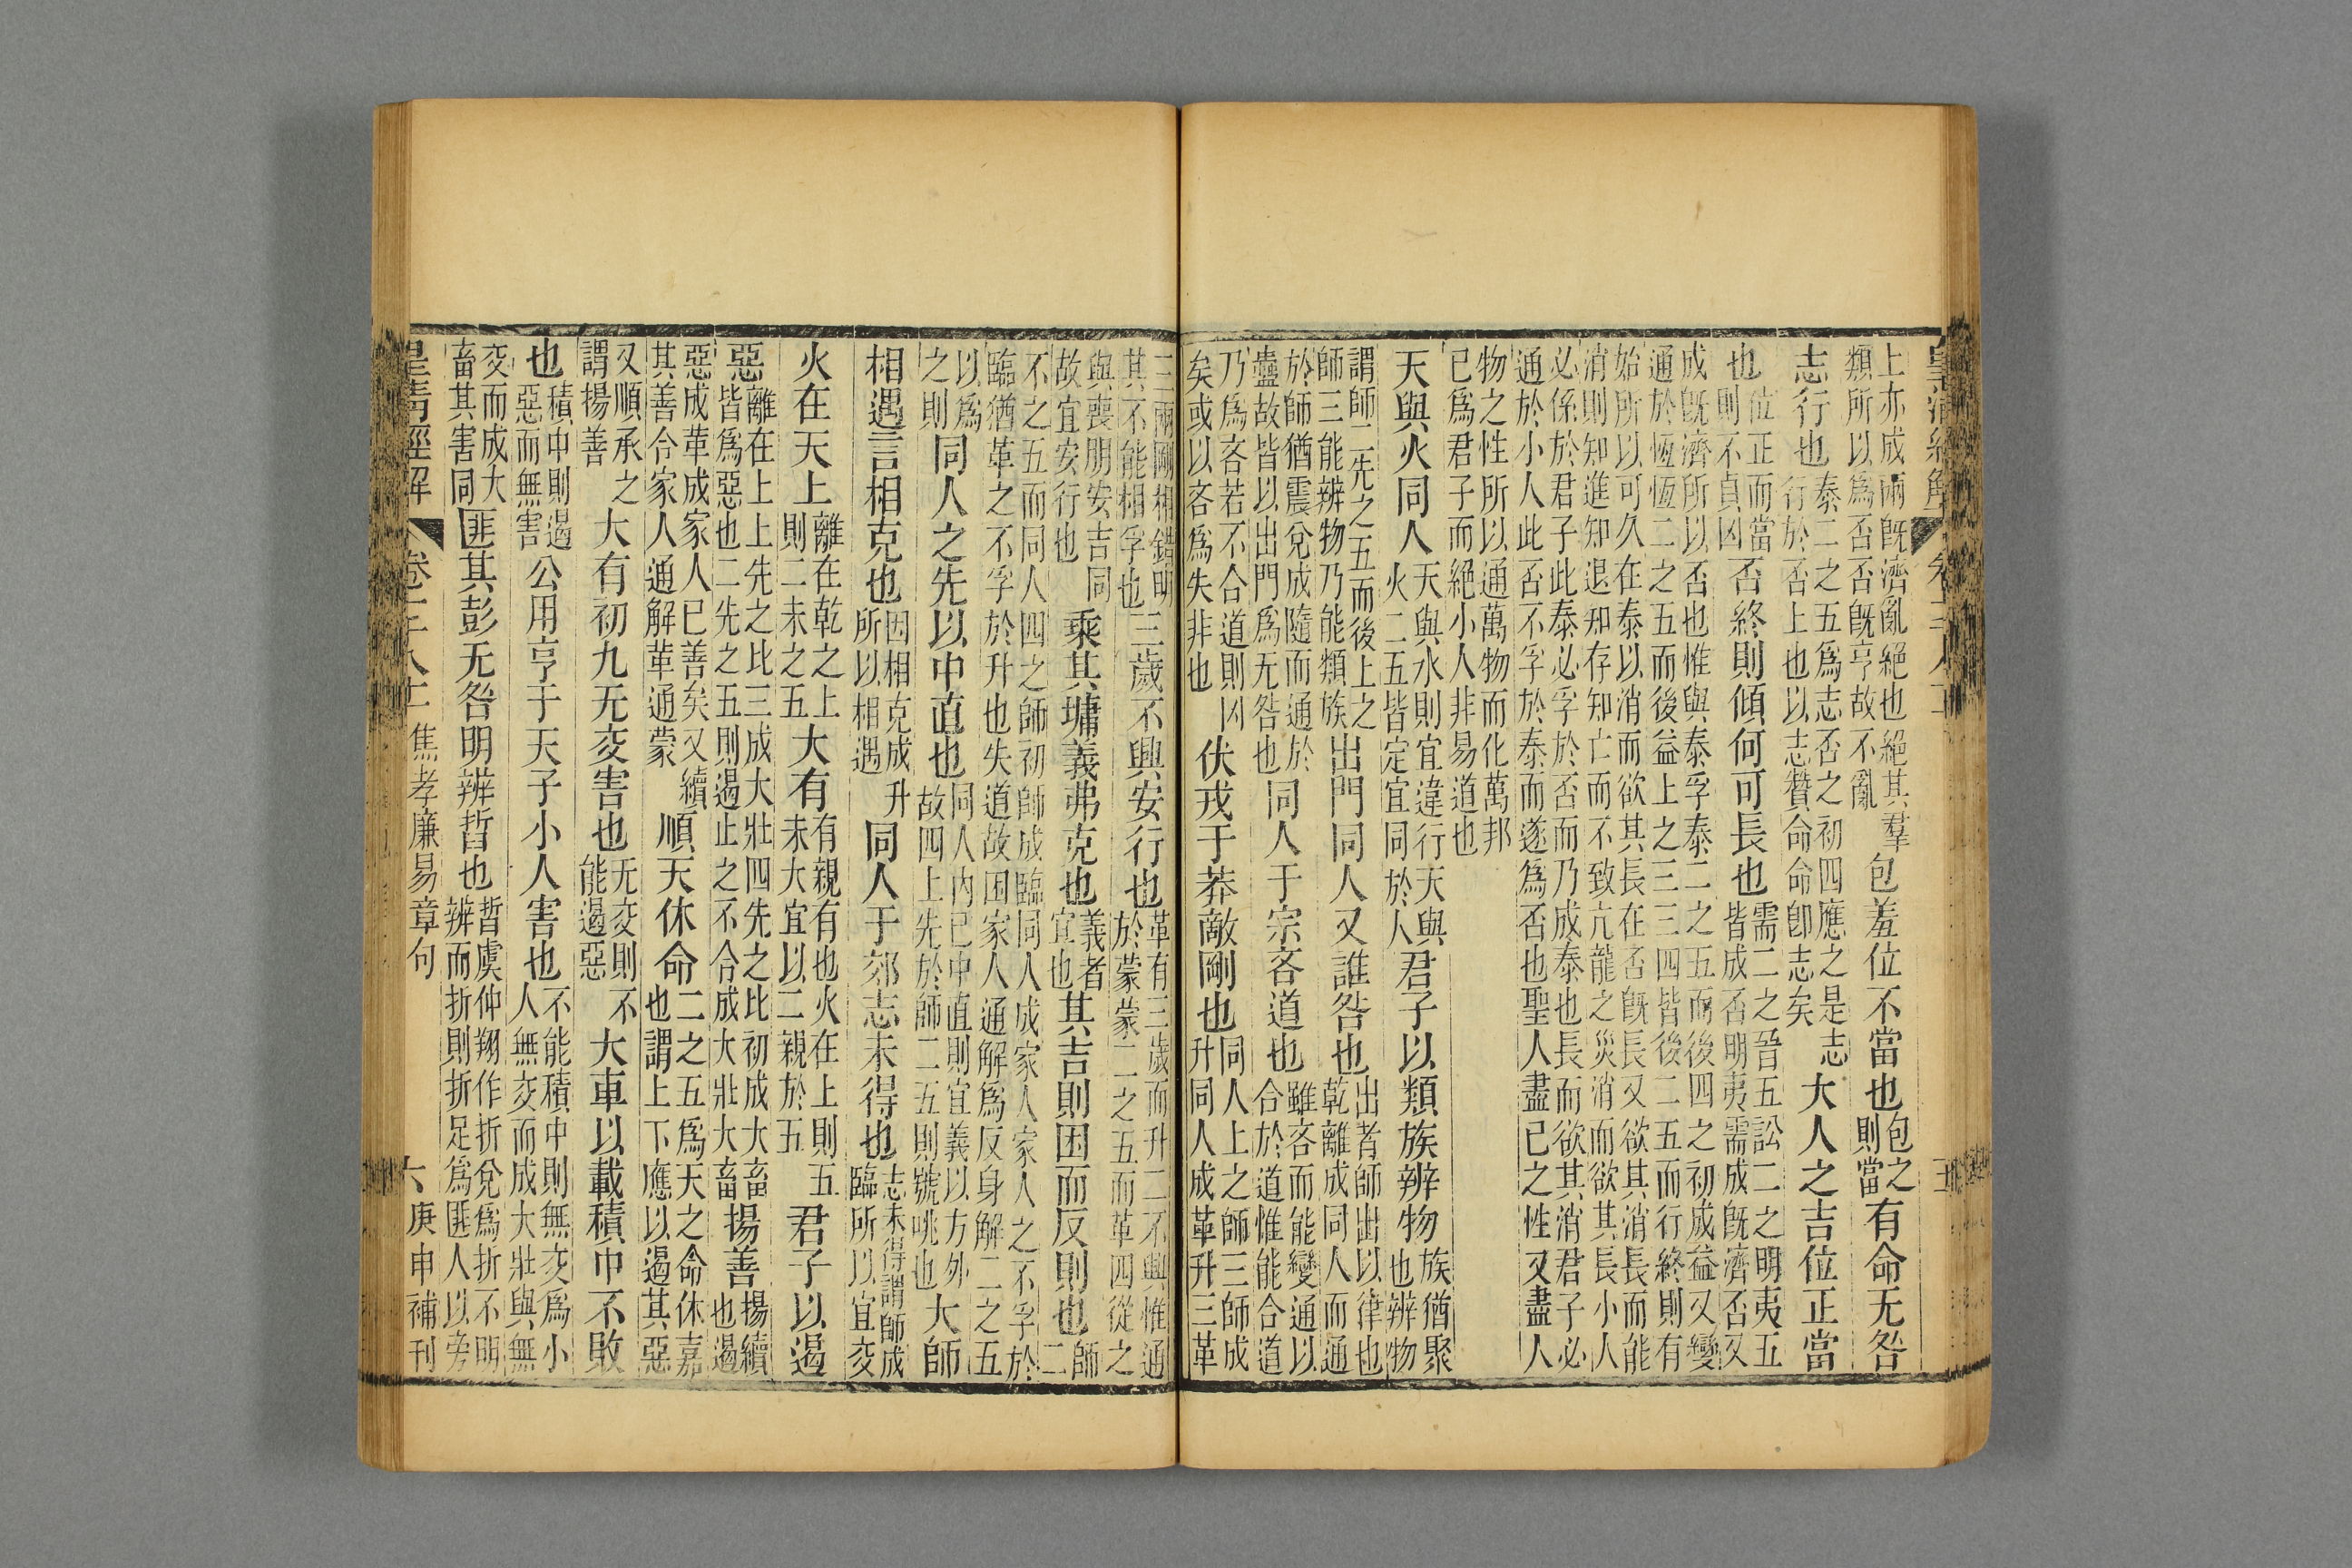 上亦成兩旣濟亂絕也絕其羣
類所以爲否否旣亨故不亂
包羞位不當也
包之
則當
有命无咎
志行也
泰二之五爲志否之初四應之是志
行於否上也以志贊命命卽志矣
大人之吉位正當
也
位正而當
則不貞凶
否終則傾何可長也
需二之晉五訟二之明夷五
皆成否明夷需成旣濟否又
成旣濟所以否也惟與泰孚泰二之五而後四之初成益又變
通於恆恆二之五而後益上之三三四皆後二五而行終則有
始所以可久在泰以消而欲其長在否旣長又欲其消長而能
消則知進知退知存知亡而不致亢龍之災消而欲其長小人
必係於君子此泰必孚於否而乃成泰也長而欲其消君子必
通於小人此否不孚於泰而遂爲否也聖人盡已之性又盡人
物之性所以通萬物而化萬邦
已爲君子而絕小人非易道也
天與火同人
天與水則宜違行天與
火二五皆定宜同於人
君子以類族辨物
族猶聚
也辨物
謂師二先之五而後上之
師三能辨物乃能類族
出門同人又誰咎也
出者師出以律也
乾離成同人而通
於師猶震兌成隨而通於
蠱故皆以出門爲无咎也
同人于宗吝道也
雖吝而能變通以
合於道惟能合道
乃爲吝若不合道則凶
矣或以吝爲失非也
伏戎于莽敵剛也
同人上之師三師成
升同人成革升三革
三兩剛相錯明
其不能相孚也
三歲不興安行也
革有三歲而升二不興惟通
於蒙蒙二之五而革四從之
與喪朋安吉同
故宜安行也
乘其墉義弗克也
義者
宜也
其吉則困而反則也
師
二
不之五而同人四之師初師成臨同人成家人家人之不孚於
臨猶革之不孚於升也失道故困家人通解爲反身解二之五
以爲
之則
同人之先以中直也
同人內已中直則宜義以方外
故四上先於師二五則號咷也
大師
相遇言相克也
因相克成升
所以相遇
同人于郊志未得也
志未得謂師成
臨所以宜交
火在天上
離在乾之上
則二未之五
大有
有親有也火在上則五
未大宜以二親於五
君子以遏
惡
離在上上先之比三成大壯四先之比初成大畜
皆爲惡也二先之五則遏止之不令成大壯大畜
揚善
揚續
也遏
惡成革成家人已善矣又續
其善令家人通解革通蒙
順天休命
二之五爲天之命休嘉
也謂上下應以遏其惡
又順承之
謂揚善
大有初九无交害也
无交則不
能遏惡
大車以載積中不敗
也
積中則遏
惡而無害
公用亨于天子小人害也
不能積中則無交爲小
人無交而成大壯與無
交而成大
畜其害同
匪其彭无咎明辨晢也
晢虞仲翔作折兌爲折不明
辨而折則折足爲匪人以旁
皇清經解
焦孝廉易章句
六
庚申補刊